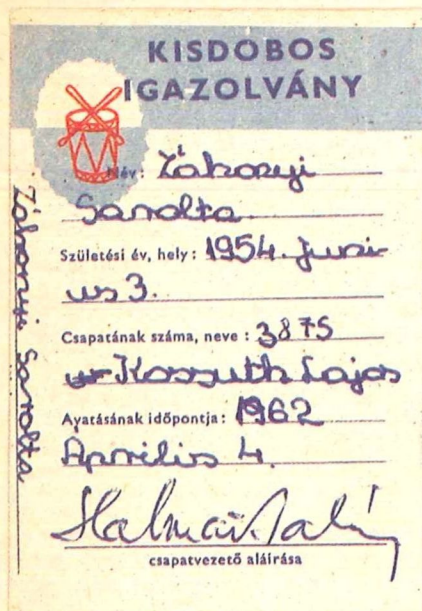 KISDOBOS
IGAZOLVÁNY
Név: Záhonyi
Sarolta
Születési év, hely: 1954. Juni-
us 3.
Csapatának száma, neve: 3875
Kossuth Lajos
Avatásának időpontja: 1962
Április 4.
csapatvezető aláírása
Záhonyi Sarolta